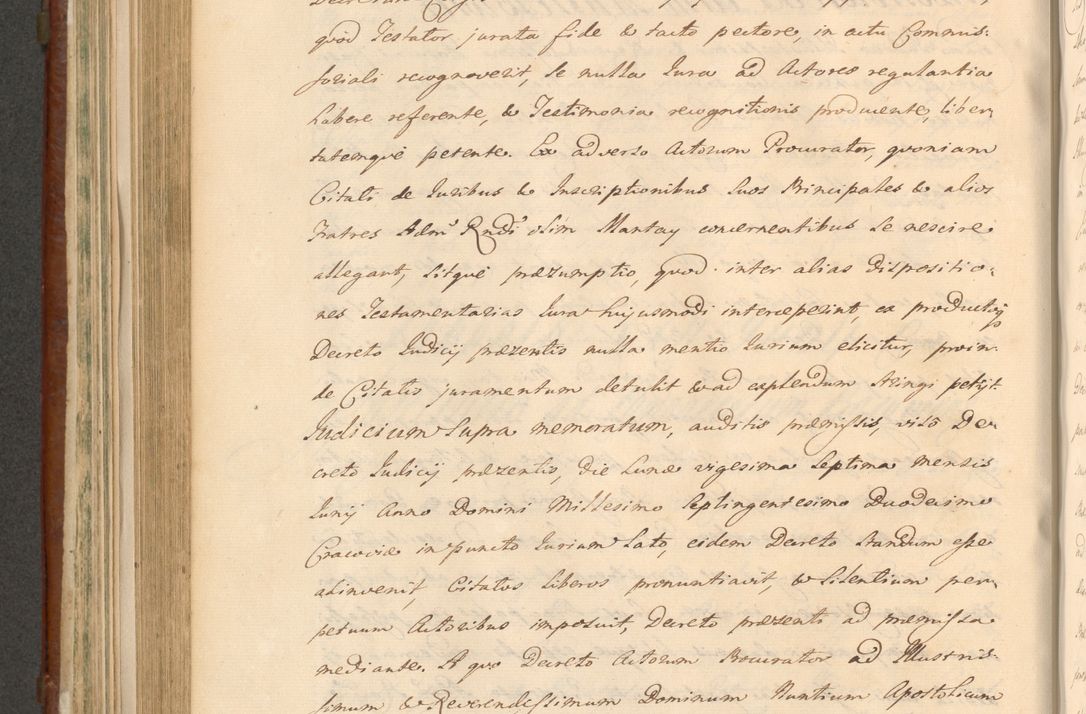 quod Testator jurata fide & tacto pectore, in actu Commis-
soriali recognoverit, se nulla Iura ad Actores regulantia
habere referente, & Testimonia recognitionis producente, liber
tatemque petente. Ex adverso Actorum Procurator, quoniam
Citati de Iuribus & Inscriptionibus suos Principales & alios
Fratres Adm Rndi olim Mantay concernentibus se nescire
allegant, sitque præzumptio, quod inter alias dispositio-
nes Testamentarias Iura hujusmodi interceperint, ex productoq
Decreto Iudicij præzentis nulla mentio Iurium elicitur, proin-
de Citatis juramentum detulit & ad explendum stringi petijt.
Iudicium Supra memoratum, auditis præmissis, viso De-
creto Iudicij præzentis, die Lunæ vigesima Septima mensis
Iunij Anno Domini Millesimo Septingentesimo Duodecimo
Cracoviæ in puncto Iurium lato, eidem Decreto standum esse
adinvenit, Citatos liberos pronuntiavit, & Silentium per-
petuum Actoribus imposuit, Decreto præzenti ad præmissa
mediante. A quo Decreto Actorum Procurator ad Illustris-
simum & Reverendissimum Dominum Nuntium Apostolicum